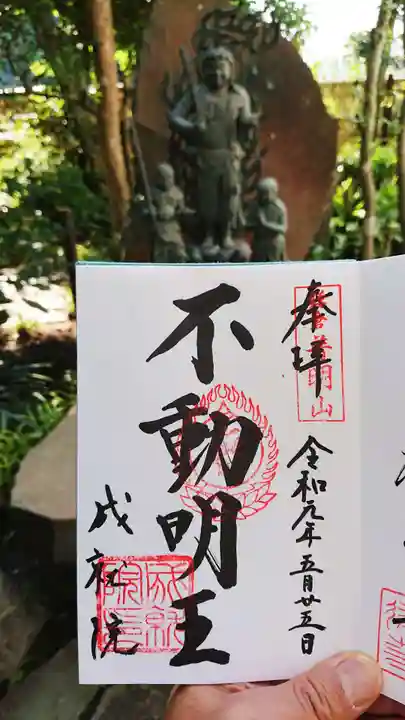 奉拝
普明山
令和元年五月廿五日
不動明王
成就院
成就
院印